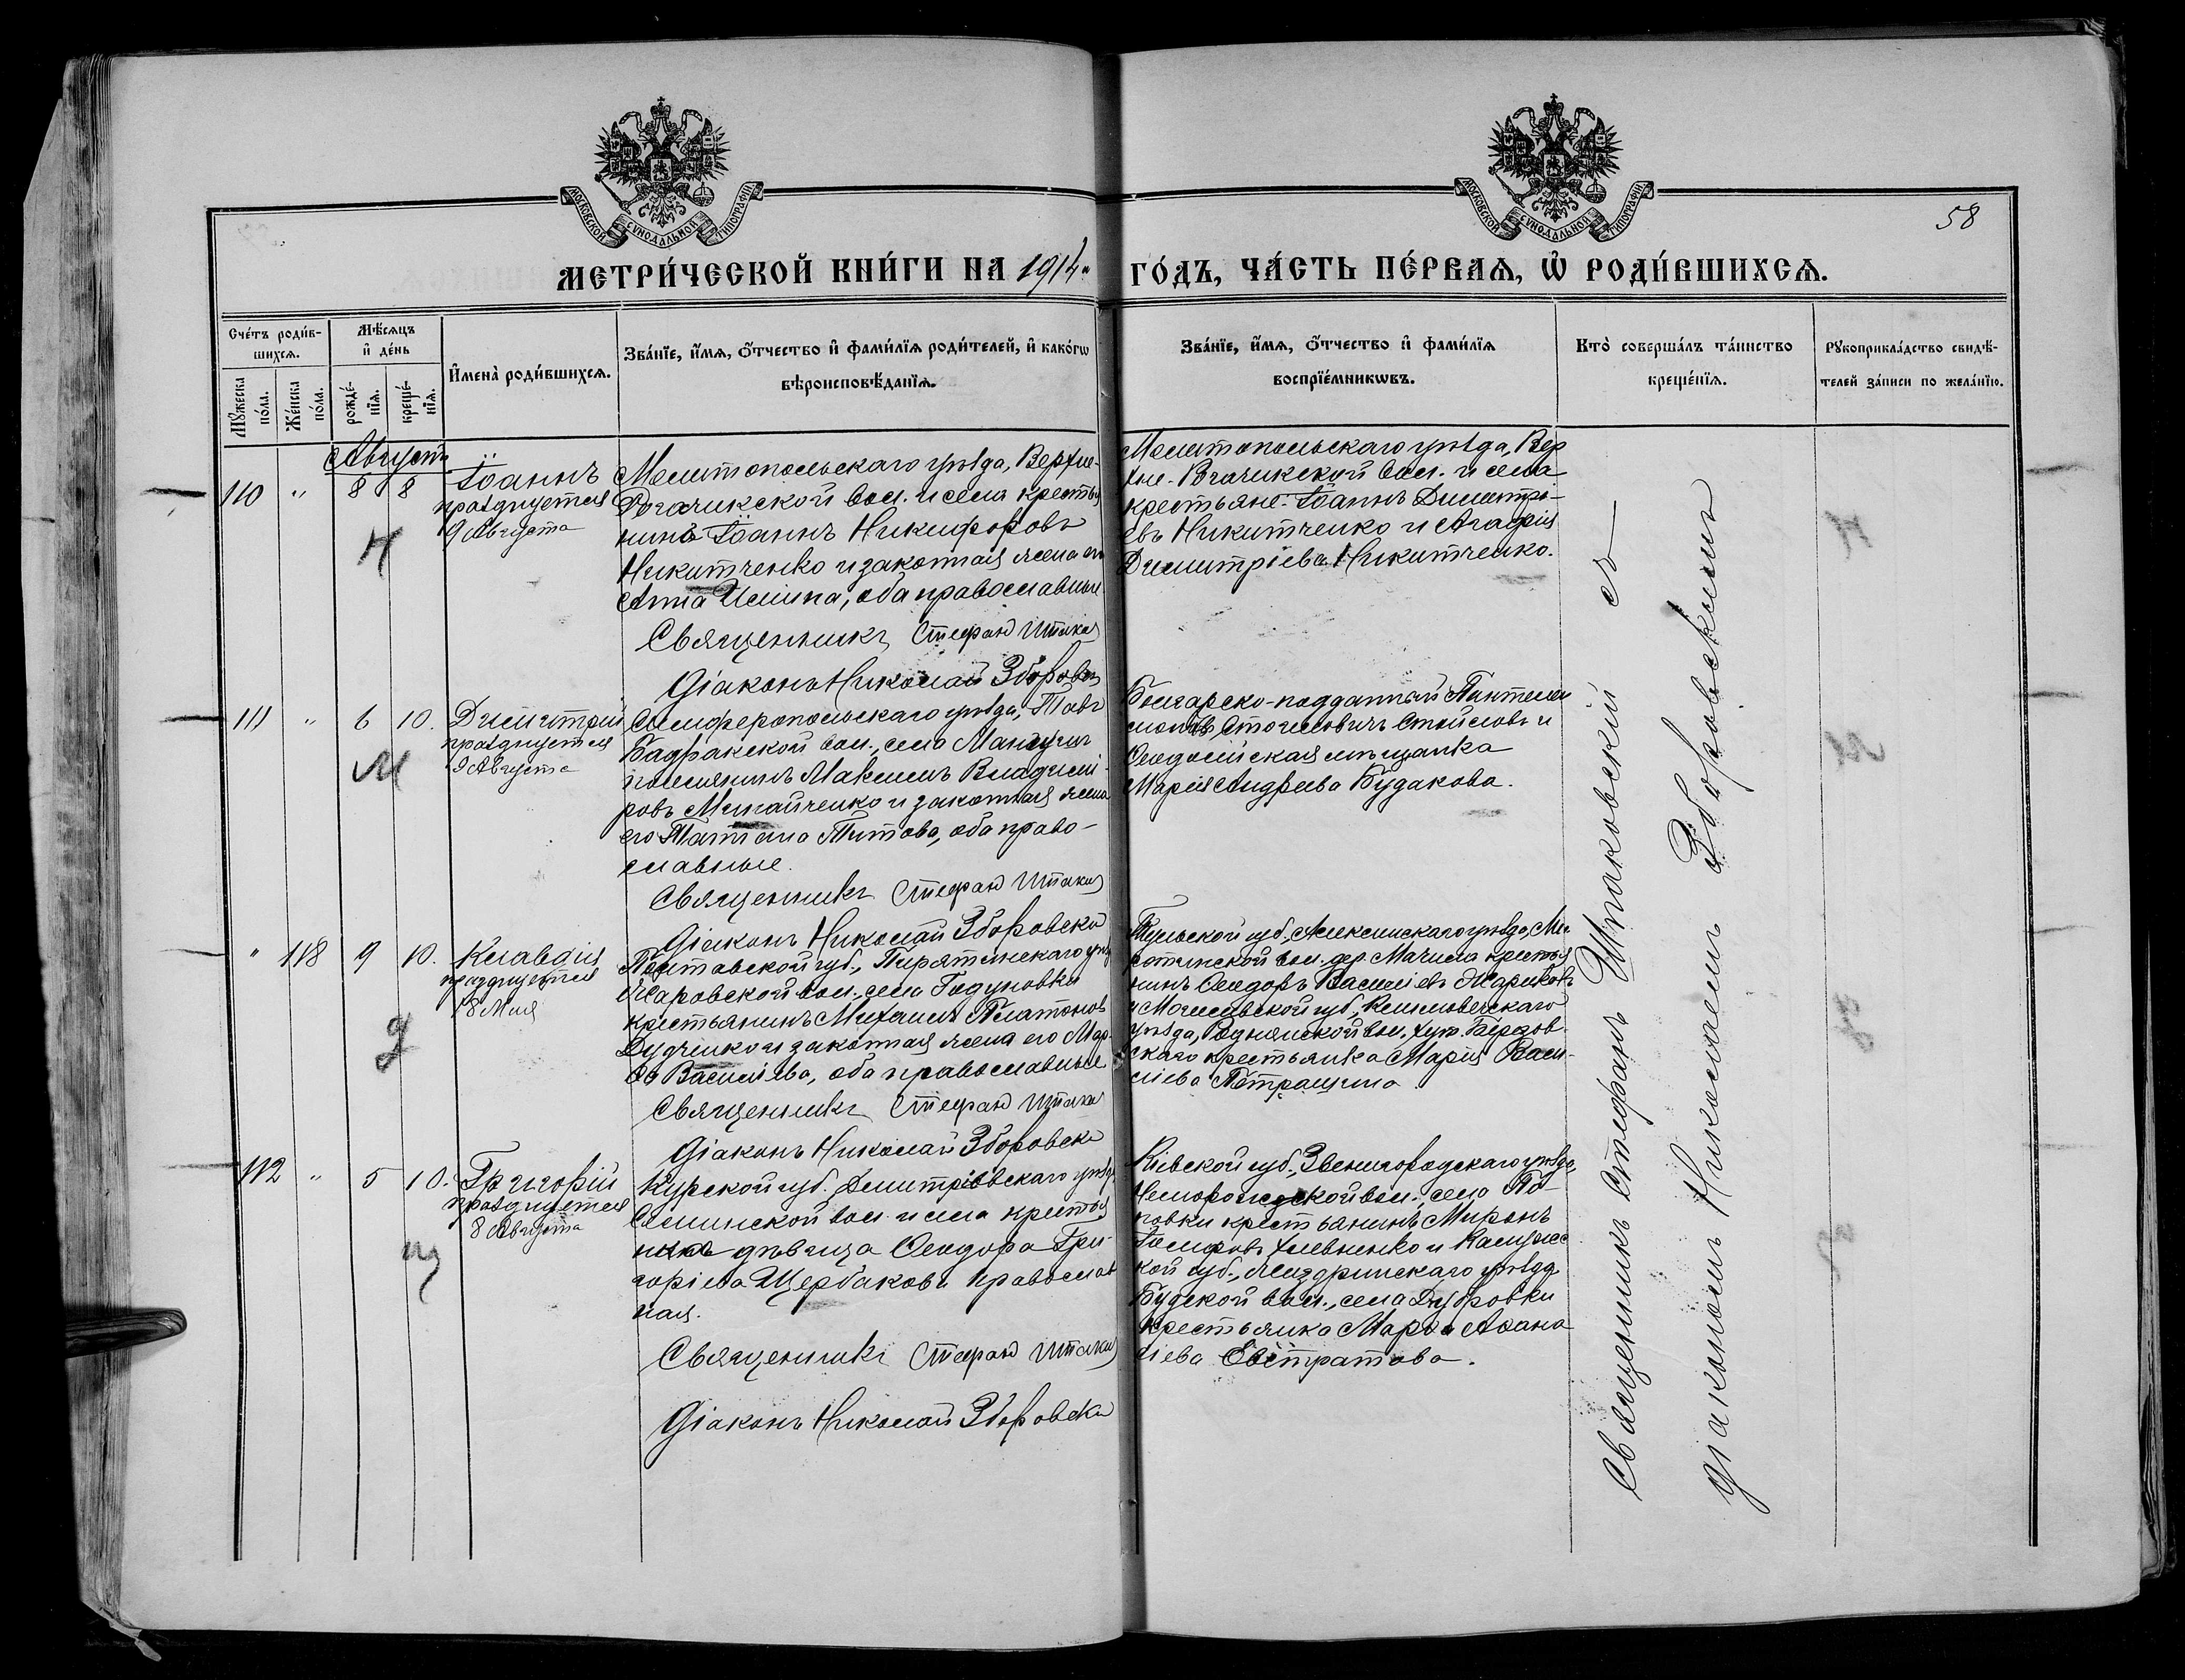 МОСКОВСКОЙ СѴНОДАЛЬНОЙ ТИПОГРАФІИ
МОСКОВСКОЙ СѴНОДАЛЬНОЙ ТИПОГРАФІИ
58
МЕТРИ́ЧЕСКОЙ КНИ́ГИ НА 1914 й ГО́ДЪ, ЧА́СТЬ ПЕ́РВАѦ, Ѡ҆ РОДИ́ВШИХСѦ.
Сче́тъ роди́в-
шихсѧ.
Мꙋ́жеска по́ла.
Же́нска по́ла.
Мѣ́сѧцъ
и҆ де́нь
рожде́-нїѧ.
креще́-нїѧ.
И҆мена̀ роди́вшихсѧ.
Зва́нїе, и҆́мѧ, ѻ҆́тчество и҆ фами́лїѧ роди́телей, и҆ како́гѡ
вѣроисповѣ́данїѧ.
Зва́нїе, и҆́мѧ, ѻ҆́тчество и҆ фами́лїѧ
воспрїе́мникѡвъ.
Кто̀ соверша́лъ та́инство
креще́нїѧ.
Рꙋкоприкла́дство свидѣ́-
телей за́писи по жела́нїю.
Августъ
110 " 8 8
Іоаннъ
празднуется
9 Августа
Н
Мелитопольскаго уѣзда, Верхне-
Рогачикской вол. и села крестья
нинъ Іоаннъ Никифоровъ
Никитченко и законная жена его
Анна Ильина, оба православные
Священникъ Стефанъ Шпаков
Діаконъ Николай Зборовск
Мелитопольскаго уѣзда, Вер
хне-Рогачикской вол. и села
крестьяне Іоаннъ Димитрі-
евъ Никитченко и Агафія
Димитріева Никитченко.
Н
111 " 6 10.
Димитрій
празднуется
9 Августа
М
Симферопольскаго уѣзда, Тавъ
Бадракской вол., села Мангушъ
поселянинъ Максимъ Владимі-
ровъ Михайченко и законная жена
его Татіана Титова, оба право-
славные.
Священникъ Стефанъ Шпаков
Діаконъ Николай Зборовскій
Болгарско-подданный Пантелеи
монъ Стоиловичъ Стоиловъ и
Ѳеодосійская мѣщанка
Марія Андреева Будакова.
М
" 118 9 10.
Клавдія
празднуется
18 Мая
Д
Полтавской губ., Пирятинскаго уѣз
села Годуновки
крестьянинъ Михаилъ Платоновъ
Дудченко и законная жена его Мар-
ѳа Васильева, оба православные
Священникъ Стефанъ Шпаков
Діаконъ Николай Зборовск
Тульской губ., Алексинскаго уѣзда,
вол. дер. крестья
нинъ Ѳеодоръ Васильевъ Жариковъ
и Могилевской губ., Климовичскаго
уѣзда, Роднянской вол. хут. Березов-
скаго крестьянка Марія Васи-
ліева Петрашина
Д
112 " 5 10.
Григорій
празднуется
8 Августа
Щ
Курской губ. Димитріевскаго уѣзд.
вол. и села крестья
нка дѣвица Ѳеодора Гри-
горіева Щербакова православ
ная.
Священникъ Стефанъ Шпаков
Діаконъ Николай Зборовск
Кіевской губ., Звенигородскаго уѣзда,
вол., села По-
повки крестьянинъ Миронъ
и Калужс
кой губ., Жиздринскаго уѣзда
Будской вол., села Дубровки
крестьянка Марѳа Аѳана
сіева Евстратова.
Щ
Священникъ Стефанъ Шпаковскій съ
діакономъ Николаемъ Зборовскимъ